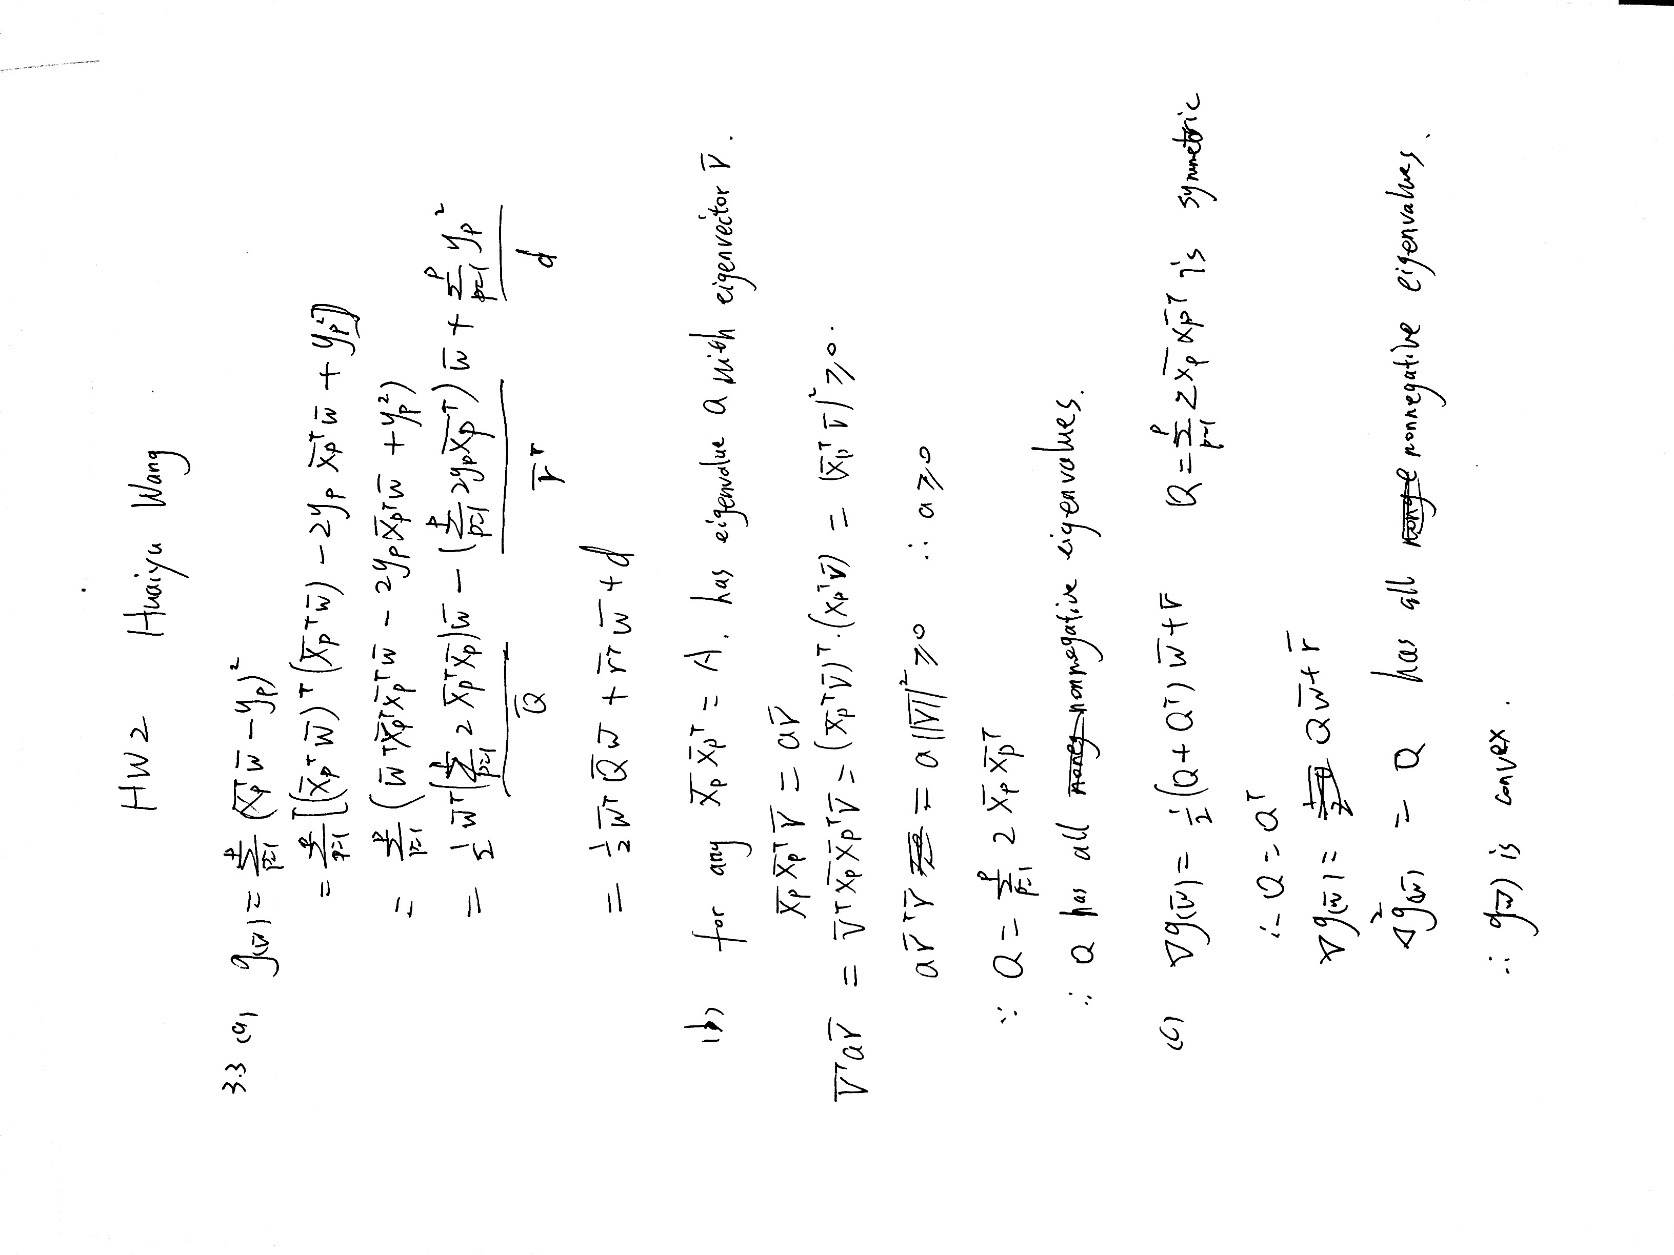 HW2 Huaiyu Wang
3.3 (a) g(w̄) = Σ_{p=1}^{P} (x̄_p^T w̄ - y_p)^2
= Σ_{p=1}^{P} [(x̄_p^T w̄)^T (x̄_p^T w̄) - 2y_p x̄_p^T w̄ + y_p^2]
= Σ_{p=1}^{P} (w̄^T x̄_p^T x̄_p^T w̄ - 2y_p x̄_p^T w̄ + y_p^2)
= ½ w̄^T (Σ_{p=1}^{P} 2 x̄_p^T x̄_p) w̄ - (Σ_{p=1}^{P} 2y_p x̄_p^T) w̄ + Σ_{p=1}^{P} y_p^2
Q̄ r̄^T d
= ½ w̄^T Q̄ w̄ + r̄^T w̄ + d
(b) for any x̄_p x̄_p^T = A. has eigenvalue a with eigenvector v̄.
x̄_p x̄_p^T v̄ = a v̄
v̄^T a v̄ = v̄^T x̄_p x̄_p^T v̄ = (x̄_p^T v̄)^T · (x̄_p^T v̄) = (x̄_p^T v̄)^2 ≥ 0.
a v̄^T v̄ = a ||v̄||^2 ≥ 0 ∴ a ≥ 0
∵ Q = Σ_{p=1}^{P} 2 x̄_p x̄_p^T
∴ Q has all nonnegative eigenvalues.
(c) ∇g(w̄) = ½ (Q + Q^T) w̄ + r̄ Q = Σ_{p=1}^{P} 2 x̄_p x̄_p^T is symmetric
∴ Q = Q^T
∇g(w̄) = Q w̄ + r̄
∇^2 g(w̄) = Q has all nonnegative eigenvalues.
∴ g(w̄) is convex.